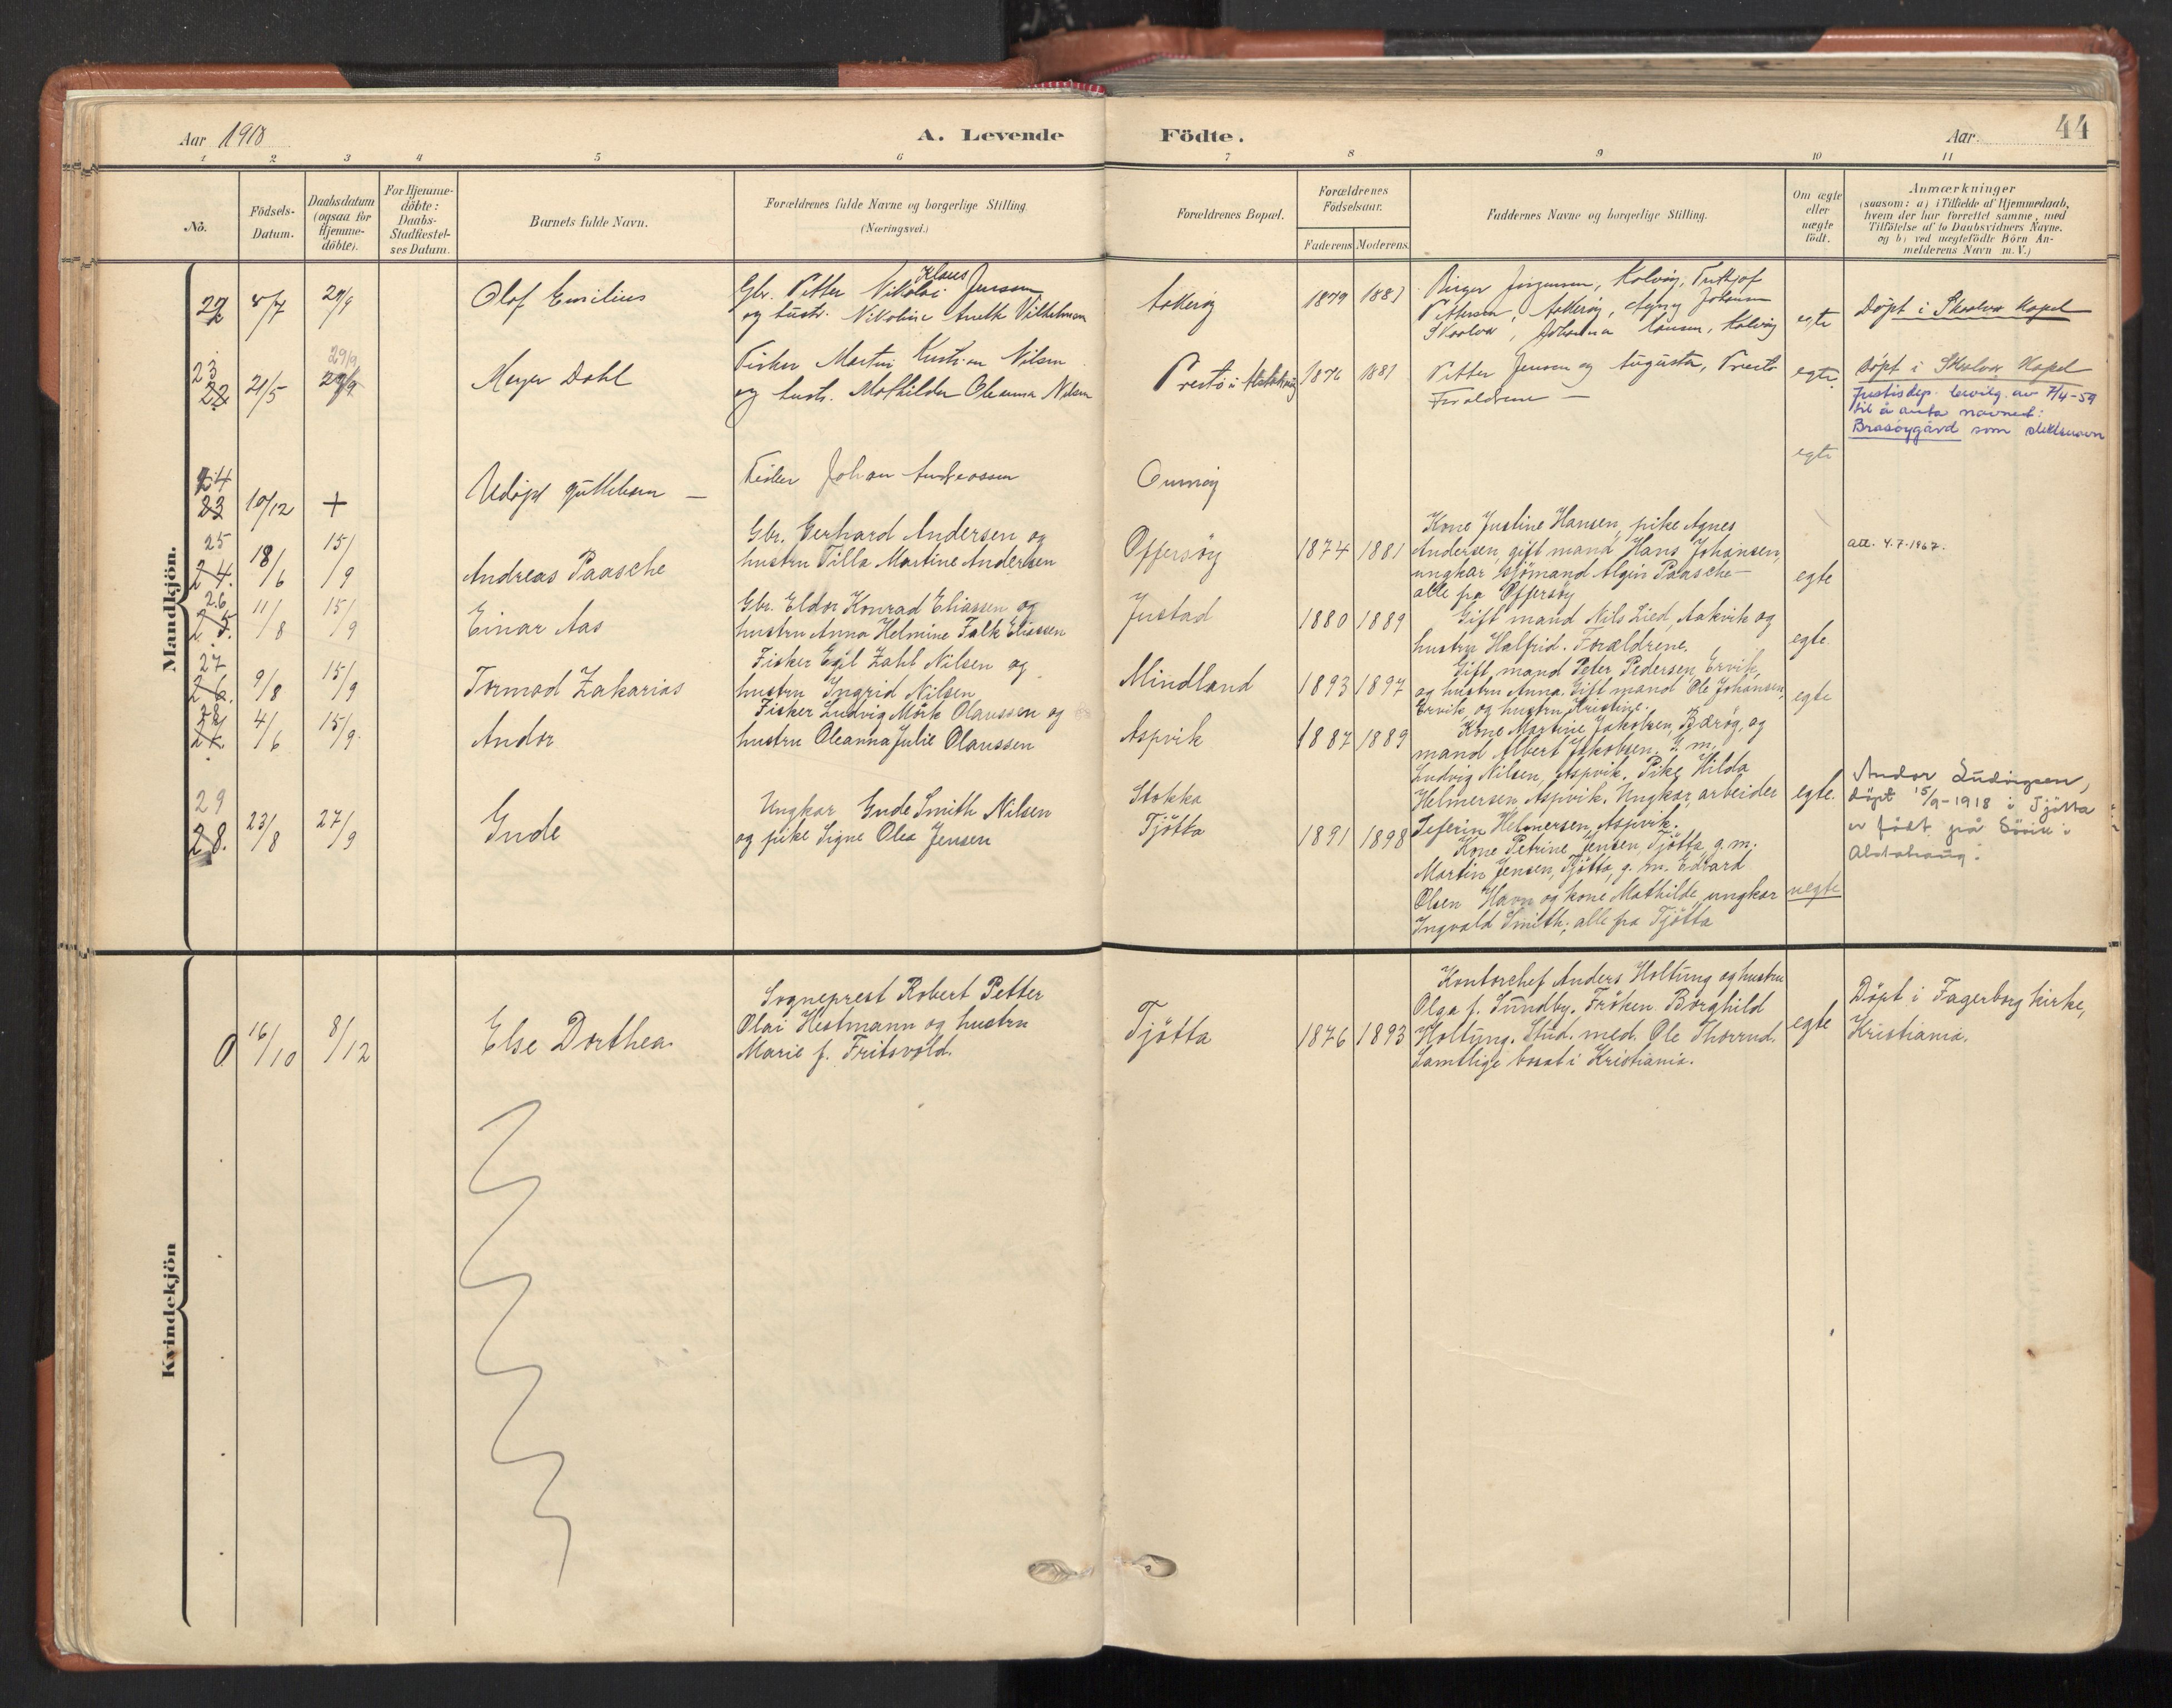 Aar 1918
A. Levende
Födte.
Aar.
44
1
2
3
4
5
6
7
8
9
10
11
No.
Födsels-
Datum.
Daabsdatum
(ogsaa for
Hjemme-
döbte).
For Hjemme-
döbte:
Daabs-
Stadfæstel-
ses Datum.
Barnets fulde Navn.
Forældrenes fulde Navne og borgerlige Stilling
(Næringsvei.)
Forældrenes Bopæl.
Forældrenes
Födselsaar.
Faderens
Moderens
Faddernes Navne og borgerlige Stilling.
Om ægte
eller
uægte
födt.
Anmærkninger
(saasom: a) i Tilfælde af Hjemmedaab,
hvem der har forrettet samme, med
Tilföielse af to Daabsvidners Navne.
og b) ved uægtefödte Börn An-
melderens Navn m. V.)
Mandkjön.
22
8/7
29/9
Olof Emilius
Gbr. Petter Nikolai Klaus Jensen
og hustr. Nikoline Anette Vilhelmsen
1879
1881
Birger Jörgensen, Kalvöy, Fritjof
Pettersen, Johansen
Skaalvær, Johanna Hansen, Kalvöy
egte
Döpt i Skaalvær Kapel
23
22
21/5
29/9
29/9
Meyer Dahl
Fisker Martin Kristian Nilsen
og hustr. Mathilde Oleanna Nilsen
Prestö i Alstahaug
1876
1881
Petter Jensen og Augusta, Prestö
Foraldrene —
egte.
Döpt i Skaalvær Kapel
Justisdep. bevilg. av 7/4-59
til å anta navnet:
Brasöygård som slektsnavn
24
23
10/12
+
Udöpt guttebarn —
Fisker Johan Andreassen
egte
25
24.
18/6
15/9
Andreas Paasche
Gbr. Gerhard Andersen og
hustru Tilla Martine Andersen
Offersöy
1874
1881
Kone Justine Hansen, pike Agnes
Andersen, gift mand Hans Johansen,
ungkar sjömand Algin Paasche —
alle fra Offersöy
egte
att. 4.7.1967.
26
25.
11/8
15/9
Einar Aas
Gbr. Eldor Konrad Eliassen og
hustru Anna Helmine Falk Eliassen
Justad
1880
1889
Gift mand Nils Lied, Aakvik og
hustru Halfrid. Forældrene.
egte.
27
26.
9/8
15/9
Tormod Zakarias
Fisker Egil Zahl Nilsen og
hustru Ingrid Nilsen
Mindland
1893
1897
Gift mand Peter Pedersen, Ervik,
og hustru Anna. Gift mand Ole Johansen,
Ervik, og hustru Kristine.
egte
28
27
4/6
15/9.
Andor
Fisker Ludvig Mörk Olaussen og
hustru Oleanna Julie Olaussen
Aspvik
1887
1889
Kone Martine Jakobsen, Bæröy, og
mand Albert Jakobsen. G. m.
Ludvig Nilsen, Aspvik. Pike Hilda
Helmersen, Aspvik. Ungkar, arbeider
Seferin Helmersen, Aspvik.
egte.
Andor Ludvigsen,
döpt 15/9-1918 i Tjötta
er födt på Sövik i
Alstahaug.
29
28.
23/8
27/9
Gude
Ungkar Gude Smith Nilsen
og pike Signe Olea Jensen
Stokka
Tjötta
1891
1898
Kone Petrine Jensen, Tjötta, g. m.
Martin Jensen, Tjötta, g. m. Edvard
Olsen Havn og kone Mathilde, ungkar
Ingvald Smith; alle fra Tjötta
uegte
Kvindekjön
0
16/10
8/12
Else Dorthea
Sogneprest Robert Petter
Olai Hestmann og hustru
Marie f. Fritsvold.
Tjötta
1876
1893
Kontorchef Anders Holtung og hustru
Olga f. Sundby. Fröken Borghild
Holtung. Stud. med. Ole Thorrud.
Samtlige bosat i Kristiania.
egte
Döpt i Fagerborg kirke,
Kristiania.